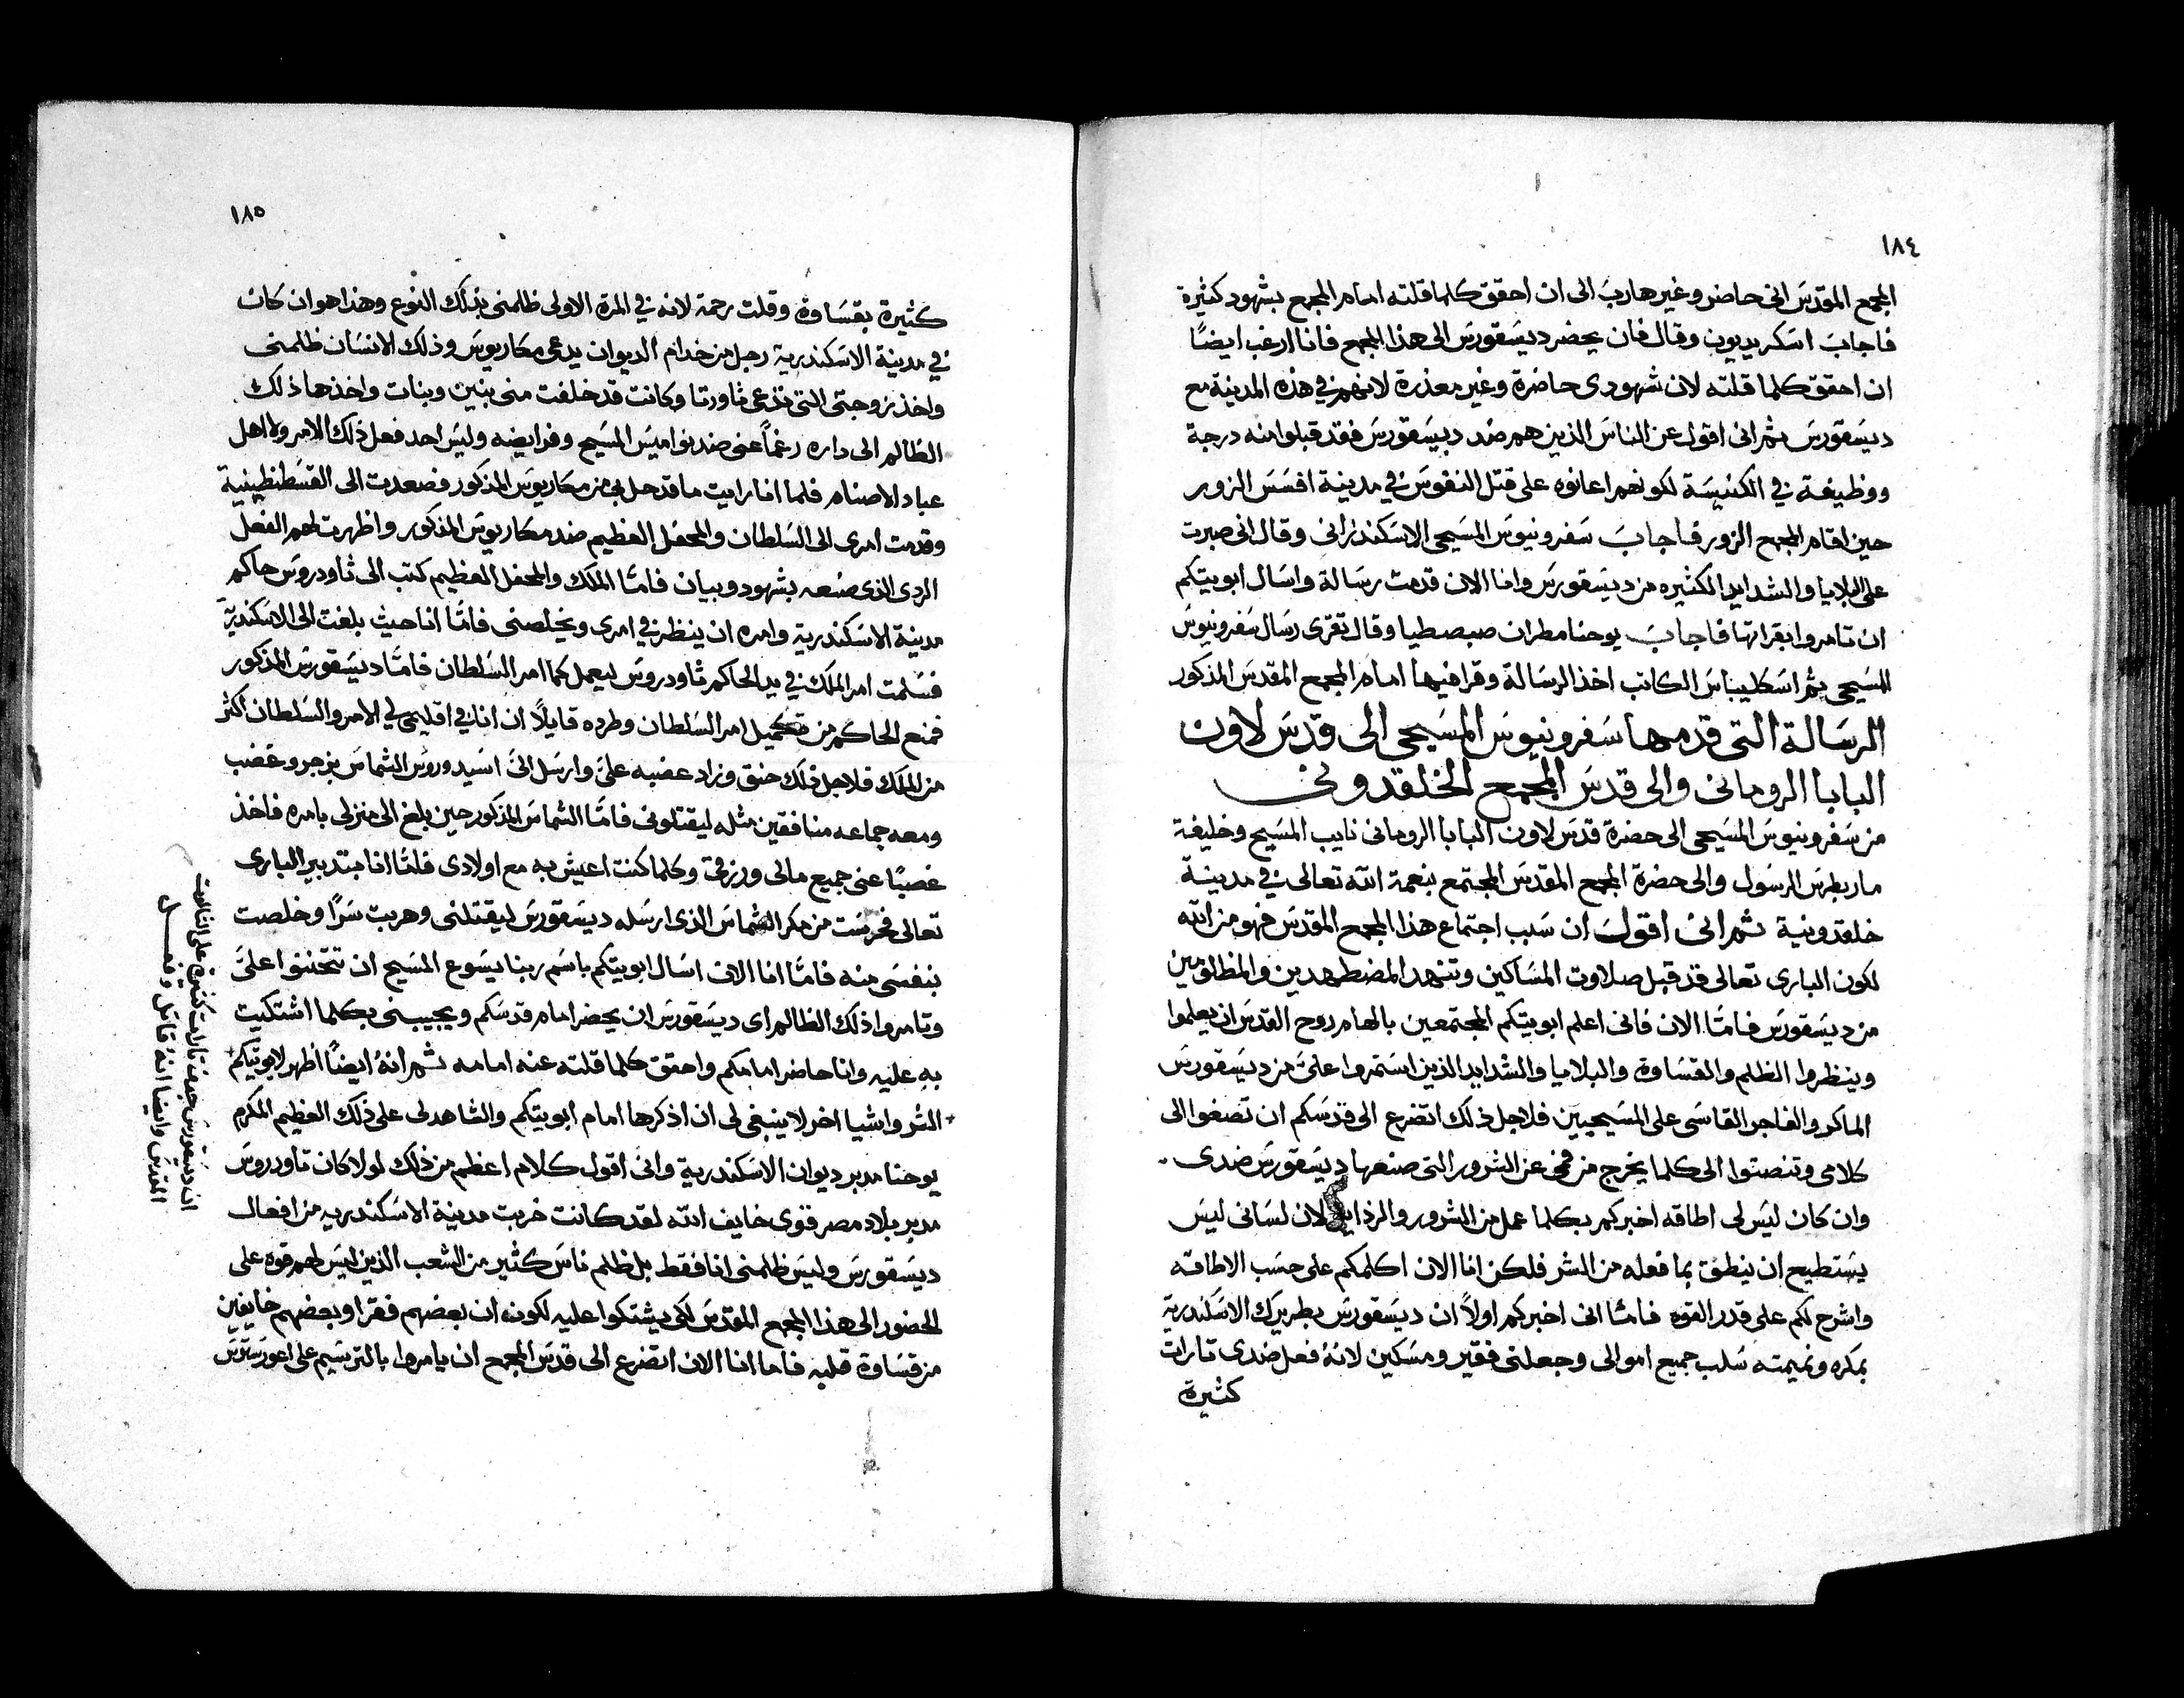 ١٨٤
المجمع المقدس انى حاضر وغير هارب الى ان احقق كلما قلته امام المجمع بشهود كثيرة
فاجاب اسكريديون وقال فان يحضر ديسقورس الى هذا المجمع فانا ارغب ايضًا
ان احقق كلما قلته لان شهودى حاضرة وغير معذرة لانهم فى هذه المدينة مع
ديسقورس ثم انى اقول عن الناس الذين هم ضد ديسقورس فقد قبلوا منه درجة
ووظيفة في الكنيسة لكونهم اعانوه على قتل النفوس في مدينة افسس الزور
حين اقام المجمع الزور فاجاب سفرونيوس المسيحى الاسكندرانى وقال انى صبرت
على البلايا والشدايد الكثيره من ديسقورس وانا الان قدمت رسالة واسال ابويتكم
ان تامروا بقراتها فاجاب يوحنا مطران صبصطيا وقال تقرى رسال سفرونيوس
المسيحى ثم اسكليبناس الكاتب اخذ الرسالة وقرا فيها امام المجمع المقدس المذكور
الرسالة التى قدمها سفرونيوس المسيحى الى قدس لاون
البابا الرومانى والى قدس المجمع الخلقدونى
من سفرونيوس المسيحى الى حضرة قدس لاون البابا الرومانى نايب المسيح وخليفة
ماربطرس الرسول والى حضرة المجمع المقدس المجتمع بنعمة الله تعالى في مدينة
خلقدونية ثم انى اقول ان سبب اجتماع هذا المجمع المقدس فهو من الله
لكون البارى تعالى قد قبل صلاوت المساكين وتنهد المضطهدين والمظلومين
من ديسقورس فامّا الان فانى اعلم ابويتكم المجتمعين بالهام روح القدس ان يعلموا
وينظروا الظلم والقساوة والبلايا والشدايد الذين استمروا علىّ من ديسقورس
الماكر والفاجر القاسى على المسيحيين فلاجل ذلك اتضرع الى قدسكم ان تصغوا الى
كلامى وتنصتوا الى كلما يخرج من فمى عن الشرور التى صنعها ديسقورس ضدى
وان كان ليس لى اطاقه اخبركم بكلما عمل من الشرور والرذايل لان لسانى ليس
يستطيع ان ينطق بما فعله من الشر فلكن انا الان اكلمكم على حسب الاطاقه
واشرح لكم على قدر القوه فامّا انى اخبركم اولاً ان ديسقورس بطريرك الاسكندرية
بمكره ونميمته سلب جميع اموالى وجعلنى فقير ومسكين لانهُ فعل ضدى تارات
كثيرة
١٨٥
كثيرة بقساوة وقلت رحمة لانه في المرة الاولى ظلمنى بذلك النوع وهذا هو ان كان
في مدينة الاسكندرية رجل من خدام الديوان يدعى مكاريوس وذلك الانسان ظلمنى
واخذ زوجتى التى تدعى ثاودتا وكانت قد خلفت منى بنين وبنات واخذها ذلك
الظالم الى داره رغمًا عنى ضد نواميس المسيح وفرايضه وليس احد فعل ذلك الامر ولا اهل
عباد الاصنام فلما انا رايت ما قد حل بى من مكاريوس المذكور فصعدت الى القسطنطينية
وقدمت امرى الى السلطان والمحفل العظيم ضد مكاريوس المذكور واظهرت لهم الفعل
الردى الذى صنعه بشهود وبيان فامّا الملك والمحفل العظيم كتب الى ثاودروس حاكم
مدينة الاسكندرية وامره ان ينظر في امرى ويخلصنى فامّا انا حيث بلغت الى الاسكندريّة
فسلمت امر الملك في يد الحاكم ثاودروس ليعمل كما امر السلطان فامّا ديسقورس المذكور
فمنع الحاكم من تكميل امر السلطان وطرده قايلاً ان انا في اقليمى لى الامر والسلطان اكثر
من الملك فلاجل ذلك حنق وزاد غضبه علىّ وارسل الىّ اسيدوروس الشماس بزجر وغضب
ومعه جماعه منافقين مثله ليقتلونى فامّا الشماس المذكور حين بلغ الى منزلى بامره فاخذ
غصبًا عنى جميع مالى ورزقى وكلما كنت اعيش به مع اولادى فلمّا انا بتدبير البارى
تعالى فحرست من مكر الشماس الذى ارسله ديسقورس ليقتلنى وهربت سرًا وخلصت
بنفسى منه فامّا انا الان اسال ابويتكم باسم ربنا يسوع المسيح ان تتحننوا علىّ
وتامروا ذلك الظالم اى ديسقورس ان يحضر امام قدسكم ويجيبنى بكلما اشتكيت
به عليه وانا حاضر امامكم واحقق كلما قلته عنه امامه ثم انهُ ايضًا اظهر لابويتكم
الشر واشيا اخر لا ينبغى لى ان اذكرها امام ابويتكم والشاهد لى على ذلك العظيم المكرم
يوحنا مدبر ديوان الاسكندرية وانى اقول كلام اعظم من ذلك لولا كان ثاودروس
مدبر بلاد مصر قوى خايف الله لقد كانت خربت مدينة الاسكندريه من افعال
ديسقورس وليس ظلمنى انا فقط بل ظلم ناس كثير من الشعب الذين ليس لهم قوه على
الحضور الى هذا المجمع المقدس لكى يشتكوا عليه لكونه ان بعضهم فقرا وبعضهم خايفين
من قساوة قلبه فاما انا الان اتضرع الى قدس المجمع ان يامروا بالترسيم على
ان ديسقورس جدف تارات كثيرة على الثالوث
المقدس وايضا انهُ قاتل وفعل